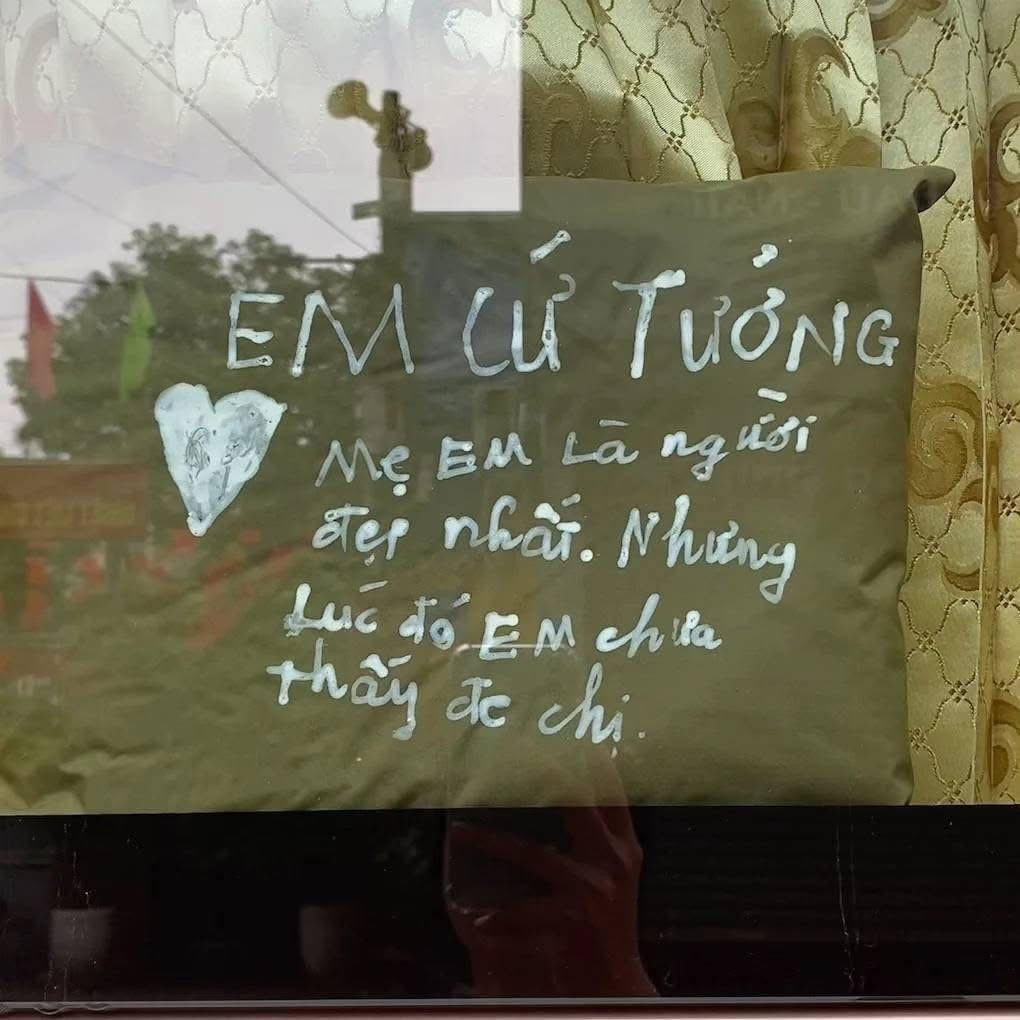 EM CỨ TƯỞNG
Mẹ EM Là người
đẹp nhất. Nhưng
Lúc đó EM chưa
thấy đc chị.